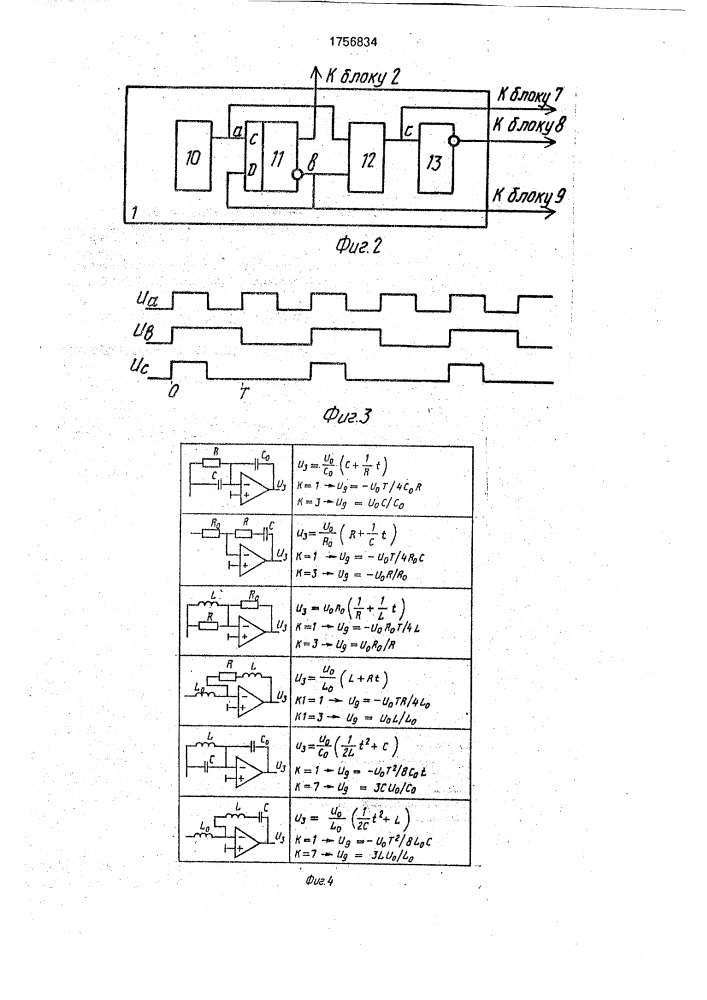 1756834
К блоку 2
К блоку 7
К блоку 8
К блоку 9
10 a C D 11 в 12 c 13
1
Фиг. 2
Uа
Uв
Uс
0 T
Фиг.3
R C₀ C U₃
U₃ = U₀/C₀ (C + 1/R t)
K = 1 → Ug = −U₀T/4C₀R
K = 3 → Ug = U₀C/C₀
R₀ R C U₃
U₃ = U₀/R₀ (R + 1/C t)
K = 1 → Ug = −U₀T/4R₀C
K = 3 → Ug = −U₀R/R₀
L R₀ R U₃
U₃ = U₀R₀ (1/R + 1/L t)
K = 1 → Ug = −U₀R₀T/4L
K = 3 → Ug = U₀R₀/R
R L L₀ U₃
U₃ = U₀/L₀ (L + Rt)
K1 = 1 → Ug = −U₀TR/4L₀
K1 = 3 → Ug = U₀L/L₀
L C₀ C U₃
U₃ = U₀/C₀ (1/2L t² + C)
K = 1 → Ug = −U₀T²/8C₀L
K = 7 → Ug = 3CU₀/C₀
L C L₀ U₃
U₃ = U₀/L₀ (1/2C t² + L)
K = 1 → Ug = −U₀T²/8L₀C
K = 7 → Ug = 3LU₀/L₀
Фиг.4